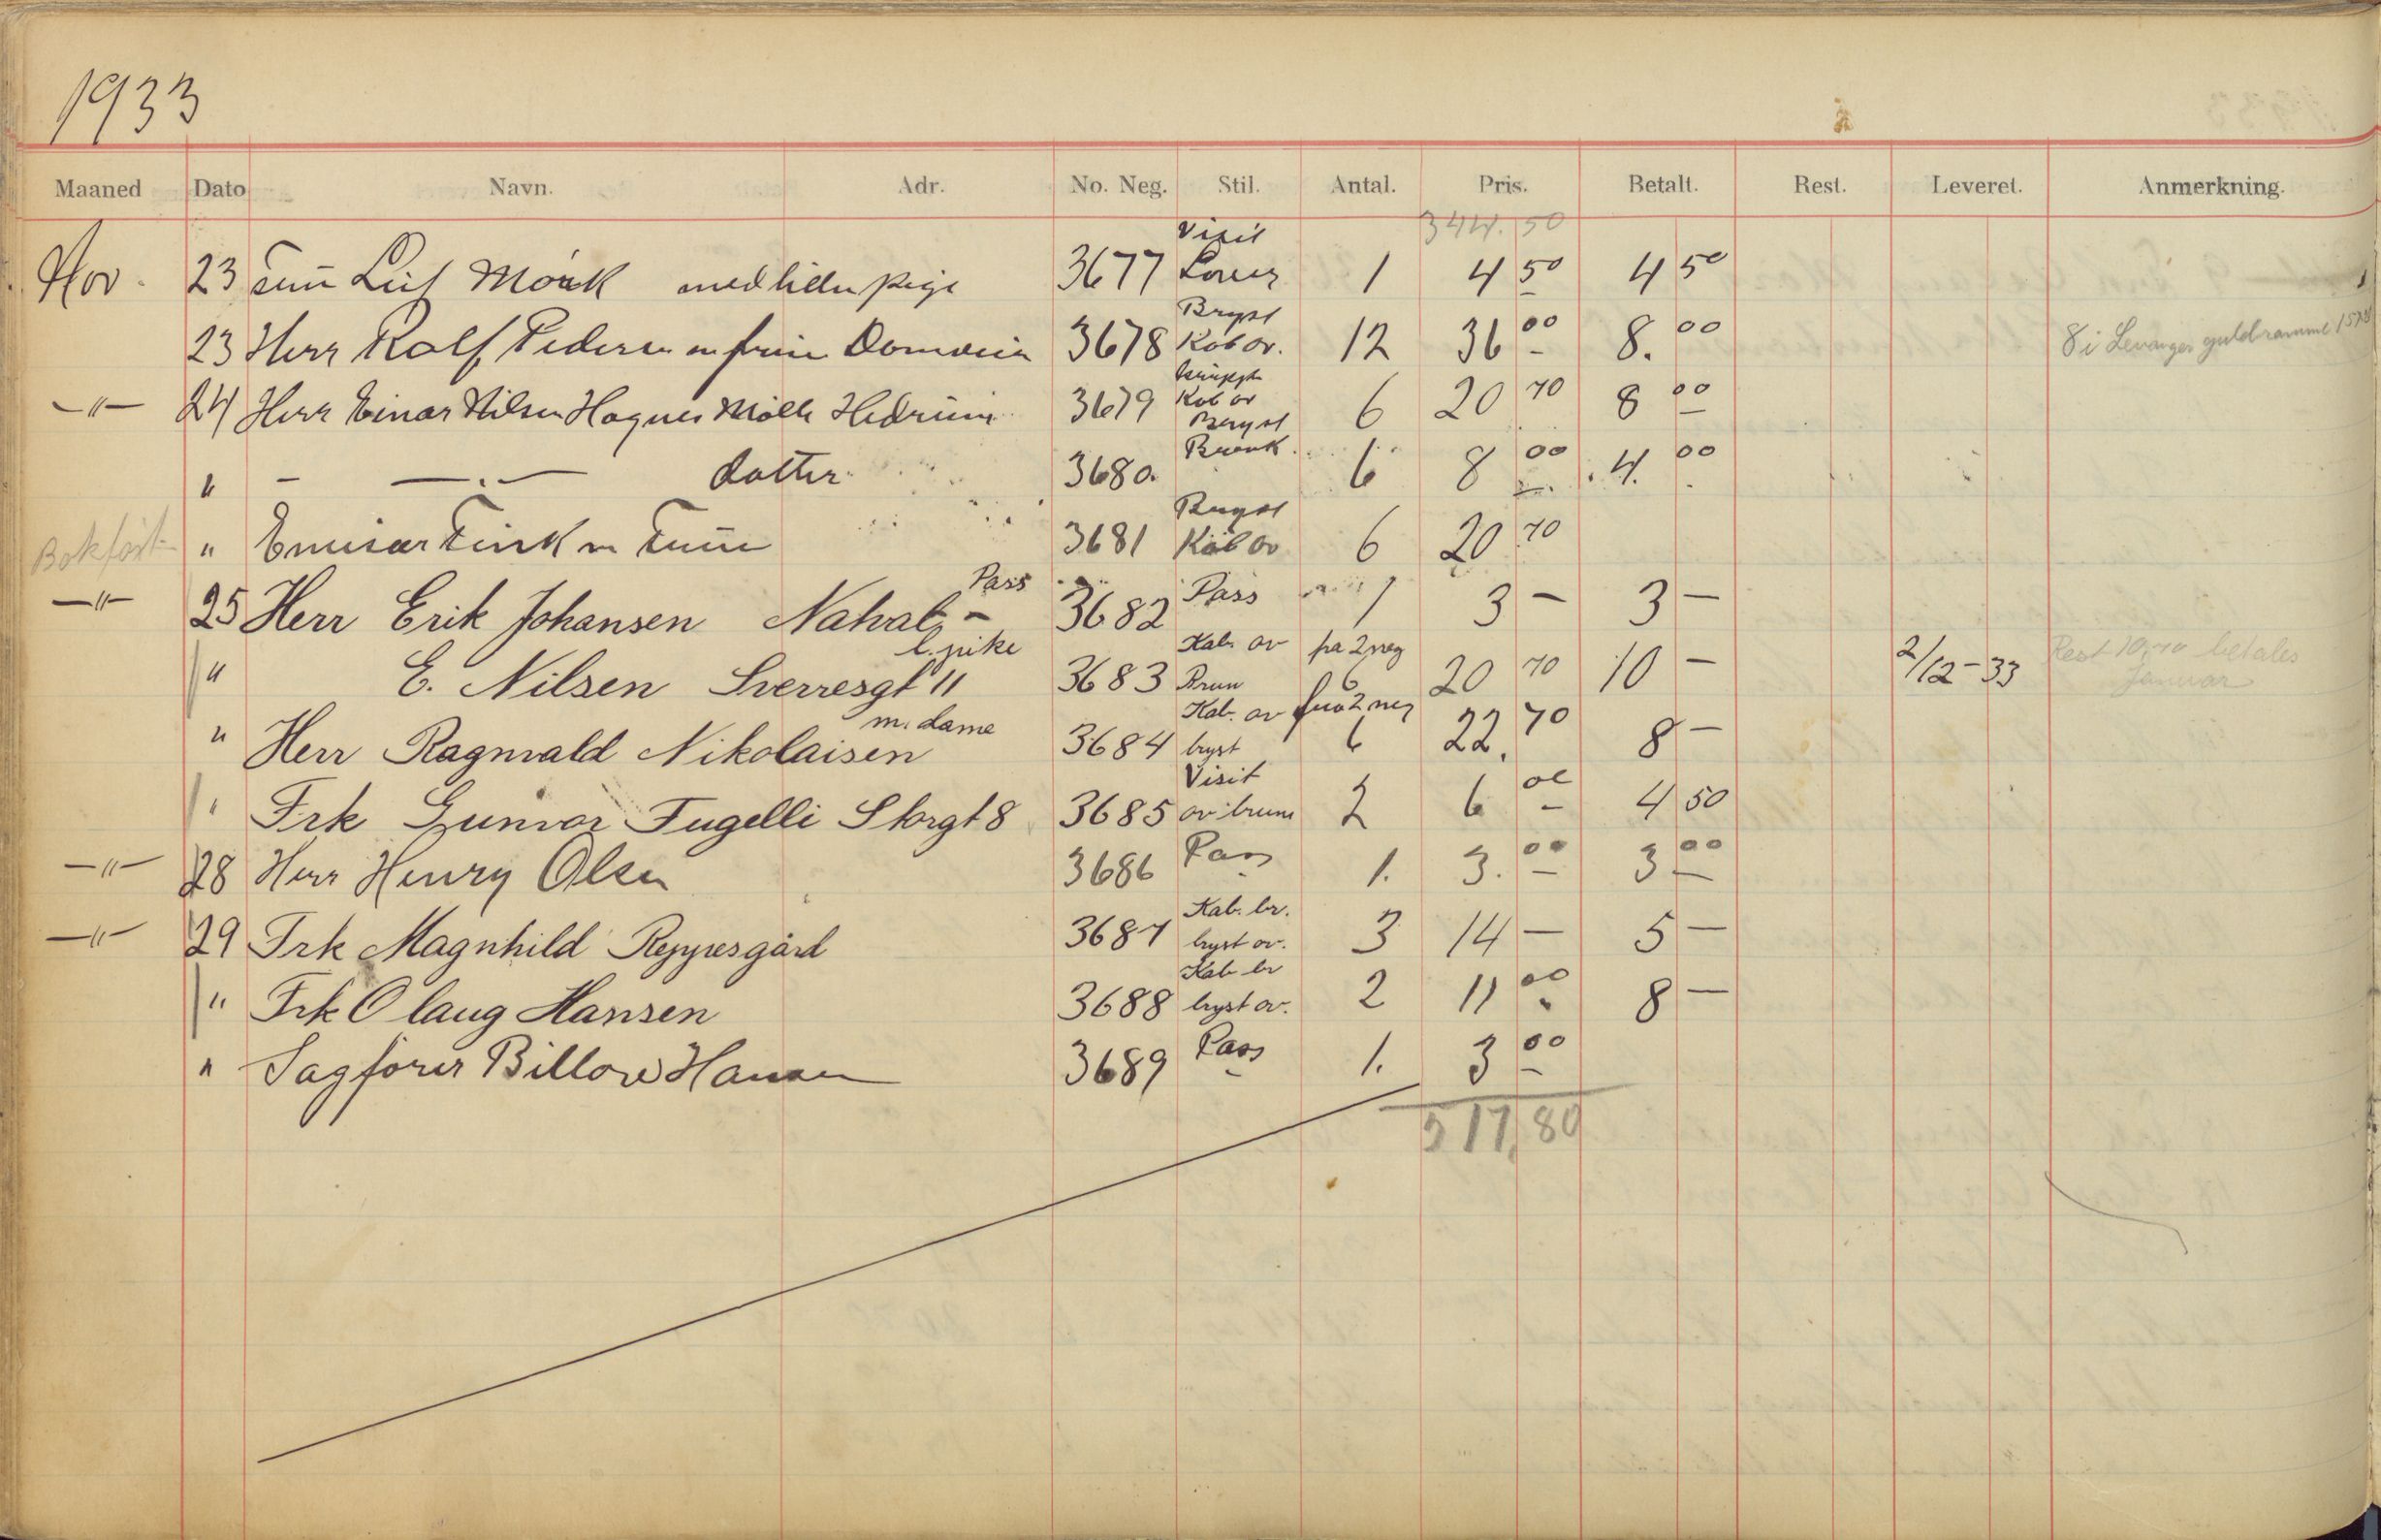 1933
Maaned Dato Navn. Adr. No. Neg. Stil. Antal. Pris. Betalt. Rest. Leveret. Anmerkning.
344.50
Visit
Nov. 23 Leif Mörk med liden pige 3677 1 4 50 4 50
Bryst
23 Herr Rolf Pedersen m frue 3678 Kab ov. 12 36 00 8. 00 8 i Levanger guldramme
-"- 24 Herr Einar Nilsen Hagnes Mölle Hedrum 3679 Kab ov 6 20 70 8 00
Bryst
" - -.- datter. 3680. 6 8 00 4. 00
Bryst
Bokfört " Fink m Frue 3681 Kab ov 6 20 70
Pass
-"- 25 Herr Erik Johansen 3682 Pass 1 3 - 3 -
l. pike Kab. ov fra 2 neg
" E. Nilsen Sverresgt 11 3683 Brun 6 20 70 10 - 2/12-33 Rest 10,70 betales
Januar
m. dame Kab. ov fra 2 neg
" Herr Ragnvald Nikolaisen 3684 bryst 6 22. 70 8 -
Visit
" Frk Gunvor Fugelli Storgt 8 3685 ov brun 2 6 00 4 50
-"- 28 Herr Henry Olsen 3686 Pass 1. 3. 00 3 00
Kab. br.
-"- 29 Frk Magnhild Reppesgård 3687 bryst ov. 3 14 - 5 -
Kab br
" Frk Olaug Hansen 3688 bryst ov. 2 11 00 8 -
" Sagförer Billow Hansen 3689 Pass 1. 3 00
517,80